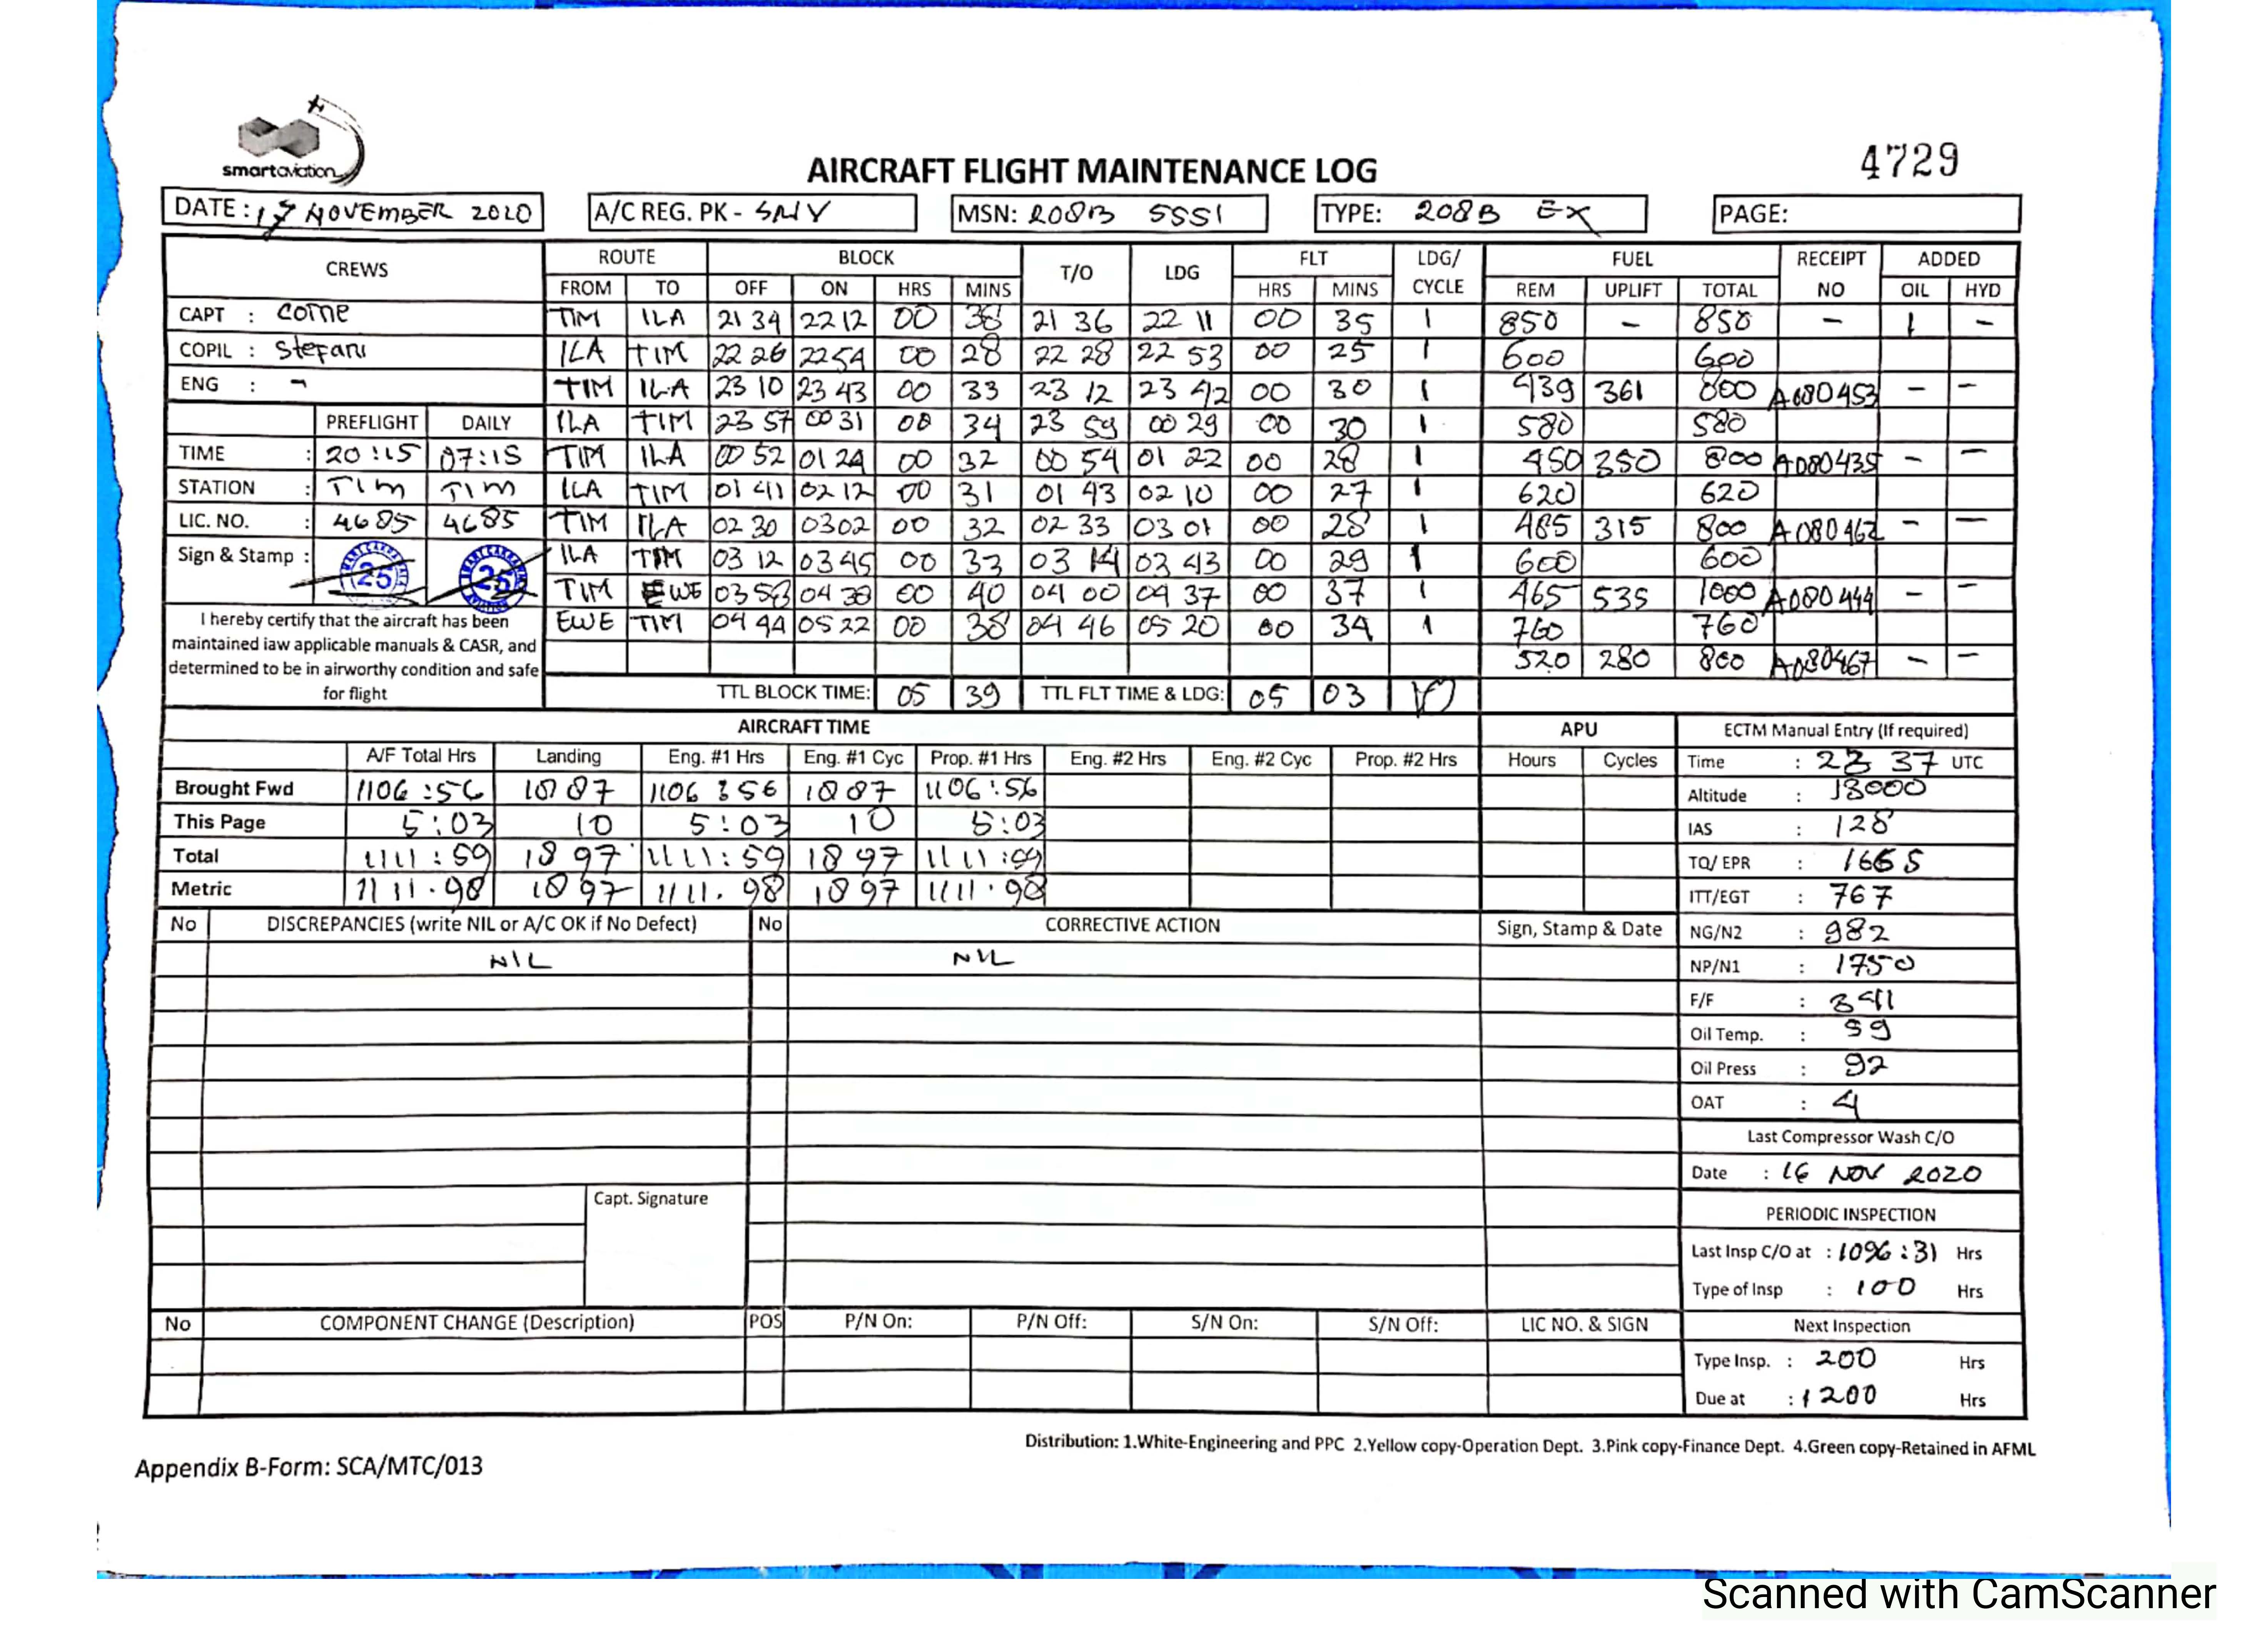 smartaviation
AIRCRAFT FLIGHT MAINTENANCE LOG
4729
DATE : 17 NOVEMBER 2020 A/C REG. PK - SNV MSN: 208B 5551 TYPE: 208B EX PAGE:
CREWS ROUTE BLOCK T/O LDG FLT LDG/ CYCLE FUEL RECEIPT NO ADDED
FROM TO OFF ON HRS MINS HRS MINS REM UPLIFT TOTAL OIL HYD
CAPT : Corne TIM ILA 21 34 22 12 00 38 21 36 22 11 00 35 1 850 - 850 - 1 -
COPIL : Stefani ILA TIM 22 26 22 54 00 28 22 28 22 53 00 25 1 600 600
ENG : - TIM ILA 23 10 23 43 00 33 23 12 23 42 00 30 1 439 361 800 A080453 - -
PREFLIGHT DAILY ILA TIM 23 57 00 31 00 34 23 59 00 29 00 30 1 580 580
TIME : 20:15 07:15 TIM ILA 00 52 01 24 00 32 00 54 01 22 00 28 1 450 350 800 A080435 - -
STATION : TIM TIM ILA TIM 01 41 02 12 00 31 01 43 02 10 00 27 1 620 620
LIC. NO. : 4685 4685 TIM ILA 02 30 03 02 00 32 02 33 03 01 00 28 1 485 315 800 A080462 - -
Sign & Stamp : 25 25 ILA TIM 03 12 03 45 00 33 03 14 03 43 00 29 1 600 600
TIM EWE 03 58 04 38 00 40 04 00 04 37 00 37 1 465 535 1000 A080444 - -
I hereby certify that the aircraft has been EWE TIM 04 44 05 22 00 38 04 46 05 20 00 34 1 760 760
maintained iaw applicable manuals & CASR, and
determined to be in airworthy condition and safe 520 280 800 A080467 - -
for flight TTL BLOCK TIME: 05 39 TTL FLT TIME & LDG: 05 03 10
AIRCRAFT TIME APU ECTM Manual Entry (If required)
A/F Total Hrs Landing Eng. #1 Hrs Eng. #1 Cyc Prop. #1 Hrs Eng. #2 Hrs Eng. #2 Cyc Prop. #2 Hrs Hours Cycles Time : 23 37 UTC
Brought Fwd 1106:56 1887 1106:56 1887 1106:56 Altitude : 13000
This Page 5:03 10 5:03 10 5:03 IAS : 128
Total 1111:59 1897 1111:59 1897 1111:59 TQ/ EPR : 1665
Metric 1111.98 1897 1111.98 1897 1111.98 ITT/EGT : 767
No DISCREPANCIES (write NIL or A/C OK if No Defect) No CORRECTIVE ACTION Sign, Stamp & Date NG/N2 : 982
NIL NIL NP/N1 : 1750
F/F : 341
Oil Temp. : 59
Oil Press : 92
OAT : 4
Last Compressor Wash C/O
Date : 16 NOV 2020
Capt. Signature
PERIODIC INSPECTION
Last Insp C/O at : 1096:31 Hrs
Type of Insp : 100 Hrs
No COMPONENT CHANGE (Description) POS P/N On: P/N Off: S/N On: S/N Off: LIC NO. & SIGN Next Inspection
Type Insp. : 200 Hrs
Due at : 1200 Hrs
Distribution: 1.White-Engineering and PPC 2.Yellow copy-Operation Dept. 3.Pink copy-Finance Dept. 4.Green copy-Retained in AFML
Appendix B-Form: SCA/MTC/013
Scanned with CamScanner